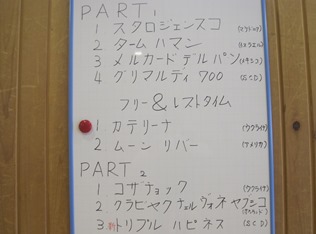 PART 1
1 スタロジェンスコ
2 タームハマン (イスラエル)
3 メルカードデルパソ (メキシコ)
4 グリマルディ 700 (SCD)
フリー & レストタイム
1 カテリーナ (ウクライナ)
2 ムーン リバー (アメリカ)
PART 2
1. コザチョック (ウクライナ)
2. クラビヤク チェルヴォネ ヤブニコ (ポーランド)
3. トリプル ハピネス (SCD)